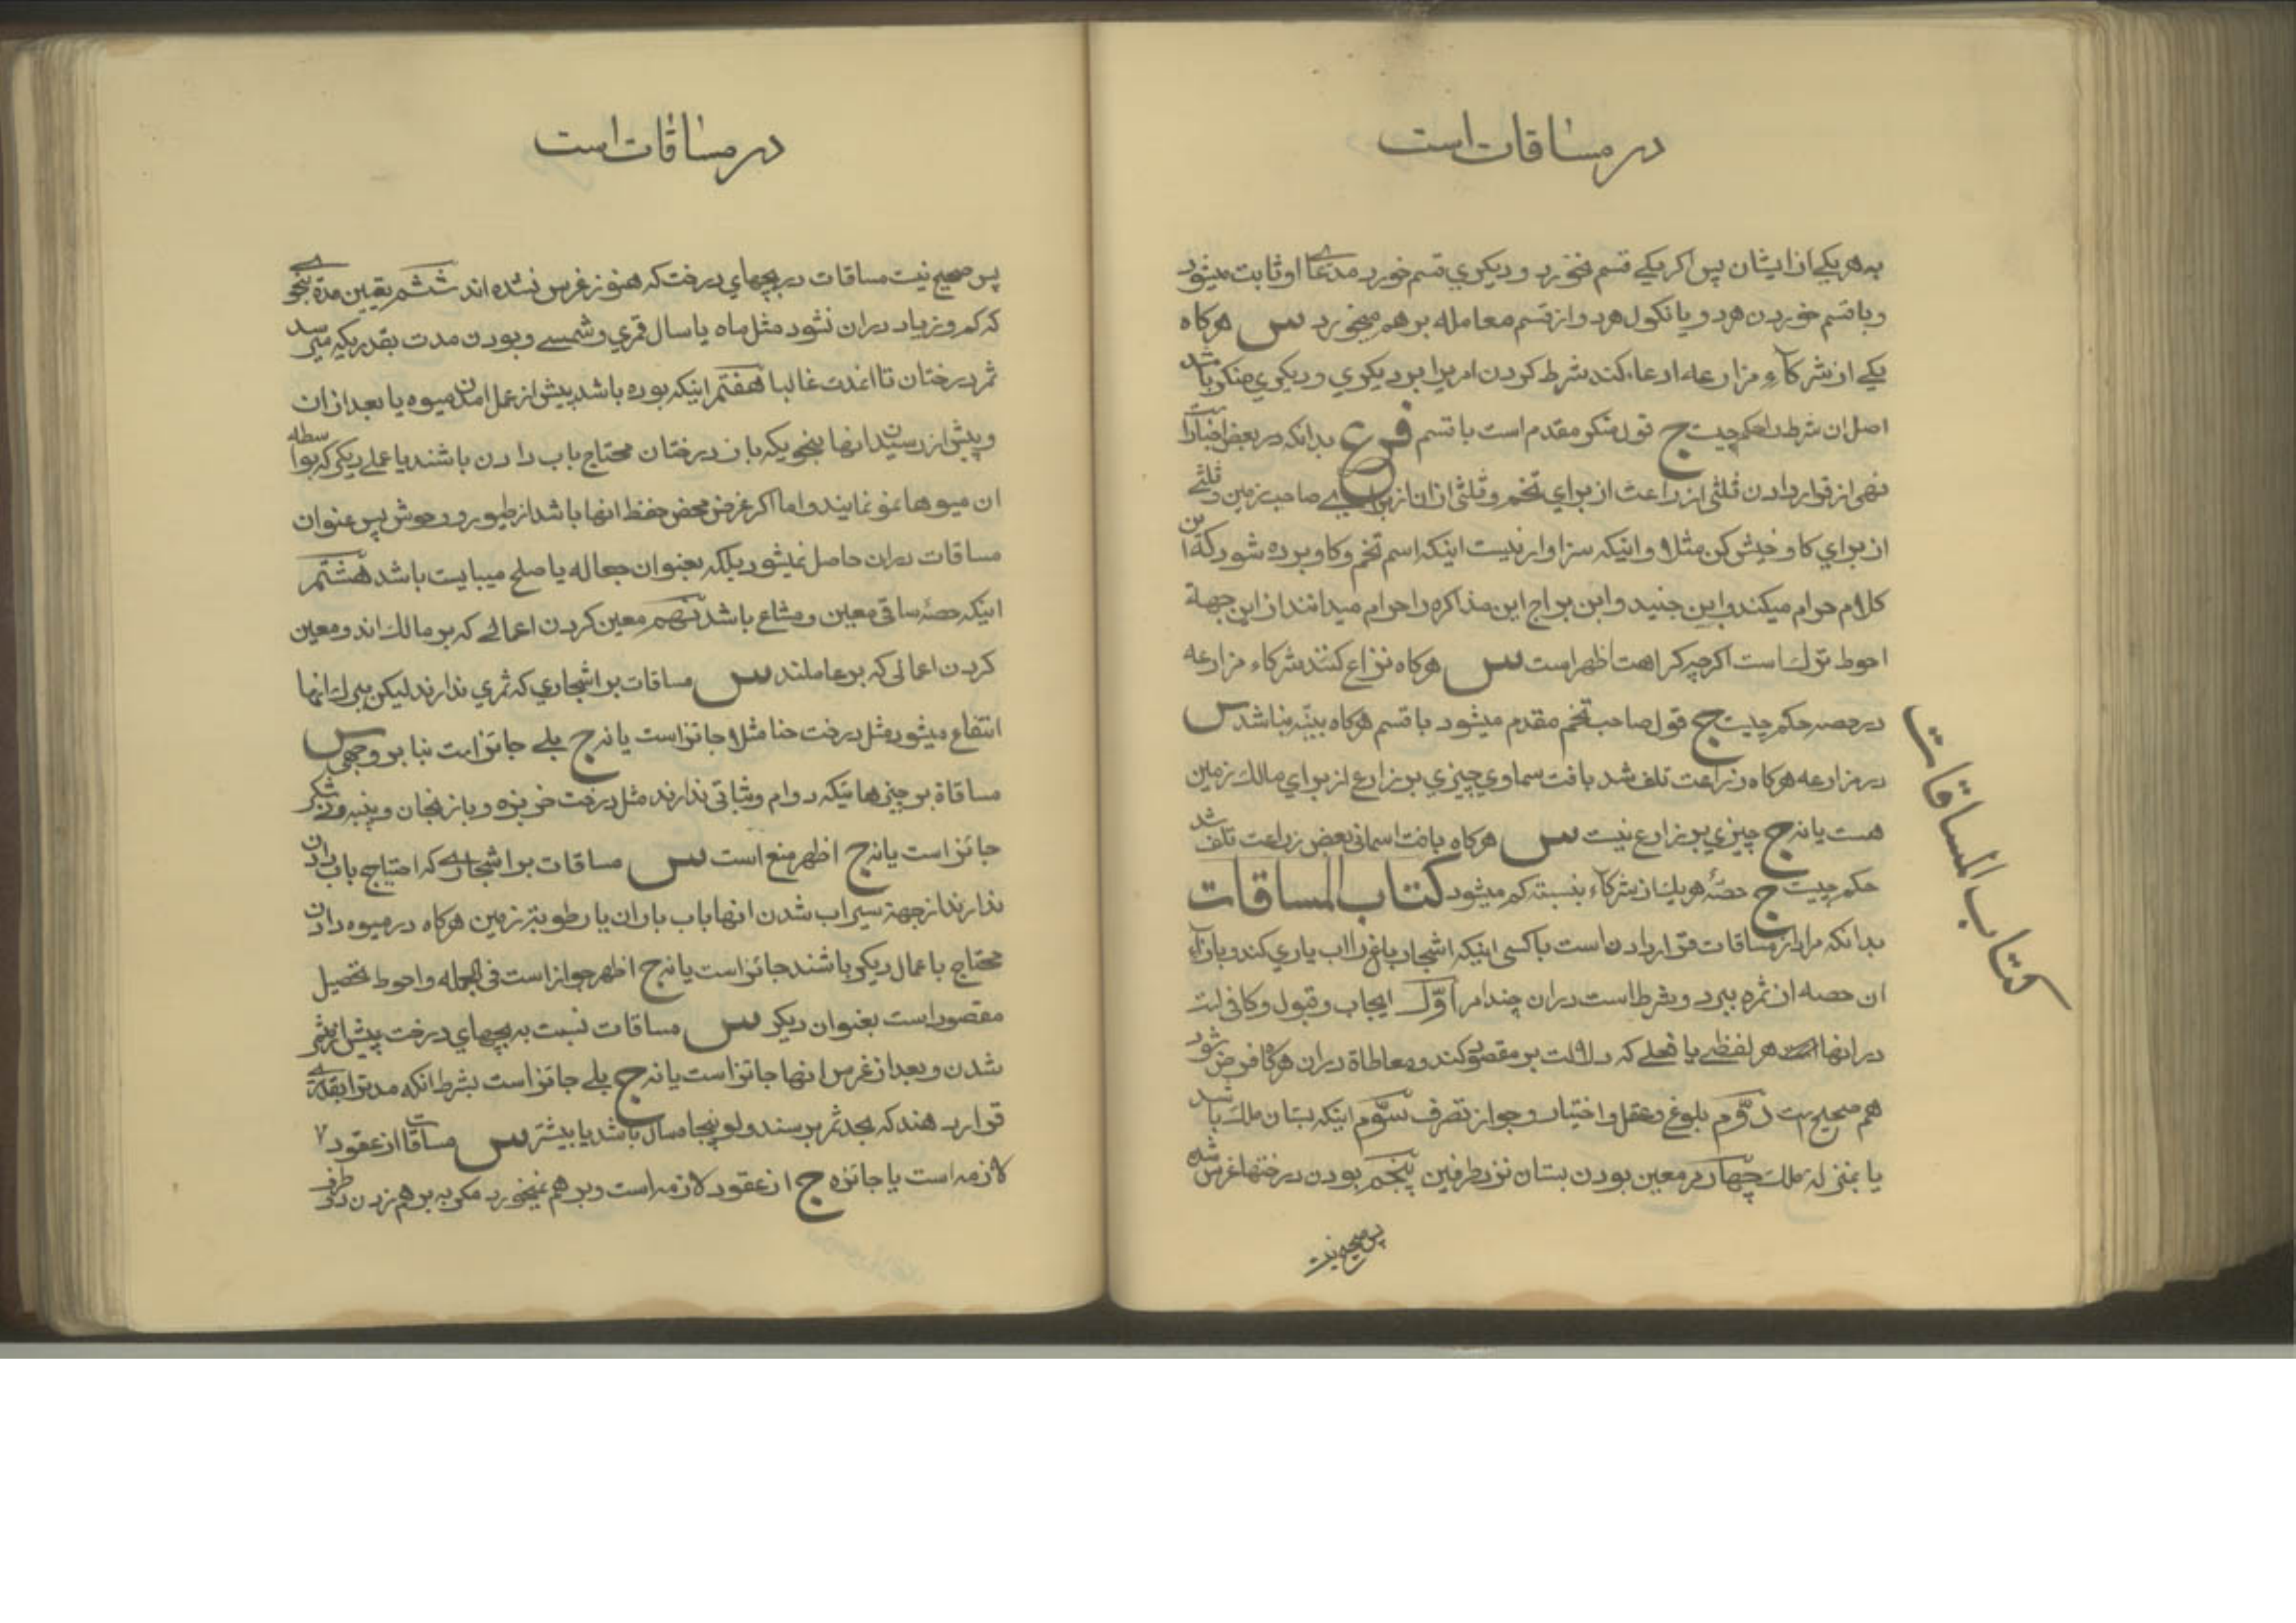 در مساقات است
به هر یکی از ایشان پس اکر یکی قسم نخورد و دیکری قسم خورد مدعای او ثابت میشود
و با قسم خوردن هر دو یا نکول هر دو از قسم معامله بر هم میخورد س هرکاه
یکی از شرکاء مزارعه ادعاء کند شرط کردن امریرا بر دیکری و دیکری منکر باشد
اصل ان شرط را حکم چیست ج قول منکر مقدم است با قسم فرع بدانکه در بعض اخبارات
نهی از قرار دادن ثلثی از زراعت از برای تخم و ثلثی از ان از برای صاحب زمین و ثلثی
از برای کاو خیش کن مثلا و اینکه سزاوار نیست اینکه اسم تخم و کاو برده شود که این
کلام حرام میکند و ابن جنید و ابن براج این مذاکره را حرام میدانند از این جهة
احوط ترک است اکرچه کراهت اظهر است س هرکاه نزاع کنند شرکاء مزارعه
در حصه حکم چیست ج قول صاحب تخم مقدم میشود با قسم هرکاه بینه نباشد س
در مزارعه هرکاه زراعت تلف شد بافت سماوی چیزی بر زارع از برای مالک زمین
هست یا نه ج چیزی بر زارع نیست س هرکاه بافت اسمانی بعض زراعت تلف شد
حکم چیست ج حصّهٔ هر یک از شرکاء بنسبته کم میشود کتاب المساقات
بدانکه مراد از مساقات قرار دادن است با کسی اینکه اشجار باغ را اب یاری کند و بازاء
ان حصه از ثمره ببرد و شرط است دران چند امر اوّل ایجاب و قبول و کافی است
در انها هر لفظی یا فعلی که دلالت بر مقصود کند و معاطاة دران هرکاه فرض شود
هم صحیح است دوّم بلوغ و عقل و اختیار و جواز تصرف سوّم اینکه بستان ملک باشد
یا بمنزله ملک چهارم معین بودن بستان نزد طرفین پنجم بودن درختها غرس شده
پس صحیح نیست
کتاب المساقات
در مساقات است
پس صحیح نیست مساقات در بچهای درخت که هنوز غرس نشده اند ششم تعیین مدة بنحوی
که کم و زیاد دران نشود مثل ماه یا سال قمری و شمسی و بودن مدت بقدریکه میرسد
ثمر درختان تا انمدت غالبا هفتم اینکه بوده باشد پیش از عمل امدن میوه یا بعد از ان
و پیش از رسیدن انها بنحویکه باز درختان محتاج باب دادن باشند یا عملی دیکر که بواسطه
ان میوها نمو نمایند و اما اکر غرض محض حفظ انها باشد از طیور و وحوش پس عنوان
مساقات دران حاصل نمیشود بلکه بعنوان جعاله یا صلح میبایست باشد هشتم
اینکه حصّه ساقی معین و مشاع باشد نهم معین کردن اعمالی که بر مالک اند و معین
کردن اعمالی که بر عاملند س مساقات بر اشجاری که ثمری ندارند لیکن ببرک انها
انتفاع میشود مثل درخت حنا مثلا جائز است یا نه ج بلی جائز است بنا بر وجهی س
مساقاة بر چیزهائیکه دوام و ثباتی ندارند مثل درخت خربزه و بازنجان و پنبه و نی شکر
جائز است یا نه ج اظهر منع است س مساقات بر اشجاری که احتیاج باب دادن
ندارند از جهة سیراب شدن انها باب باران یا رطوبت زمین هرکاه در میوه دادن
محتاج باعمال دیکر باشند جائز است یا نه ج اظهر جواز است فی الجمله و احوط تحصیل
مقصود است بعنوان دیکر س مساقات نسبت به بچهای درخت پیش از مثمر
شدن و بعد از غرس انها جائز است یا نه ج بلی جائز است بشرط انکه مدترا بقدری
قرار دهند که بحد ثمر برسند ولو پنجاه سال باشد یا بیشتر س مساقات از عقود
لازمه است یا جائزه ج از عقود لازمه است و بر هم نمیخورد مکر به بر هم زدن طرفین